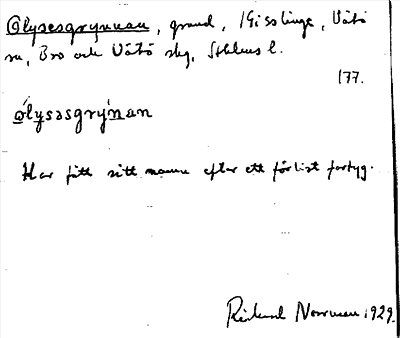 Olysesgrynnan, grund, Gisslinge, Vätö
sn, Bro och Vätö skg, Sthlms l.
177.
o̲ly̲sasgrýn̲an
Har fått sitt namn efter ett förlist fartyg.
Rickard Norrman 1929.